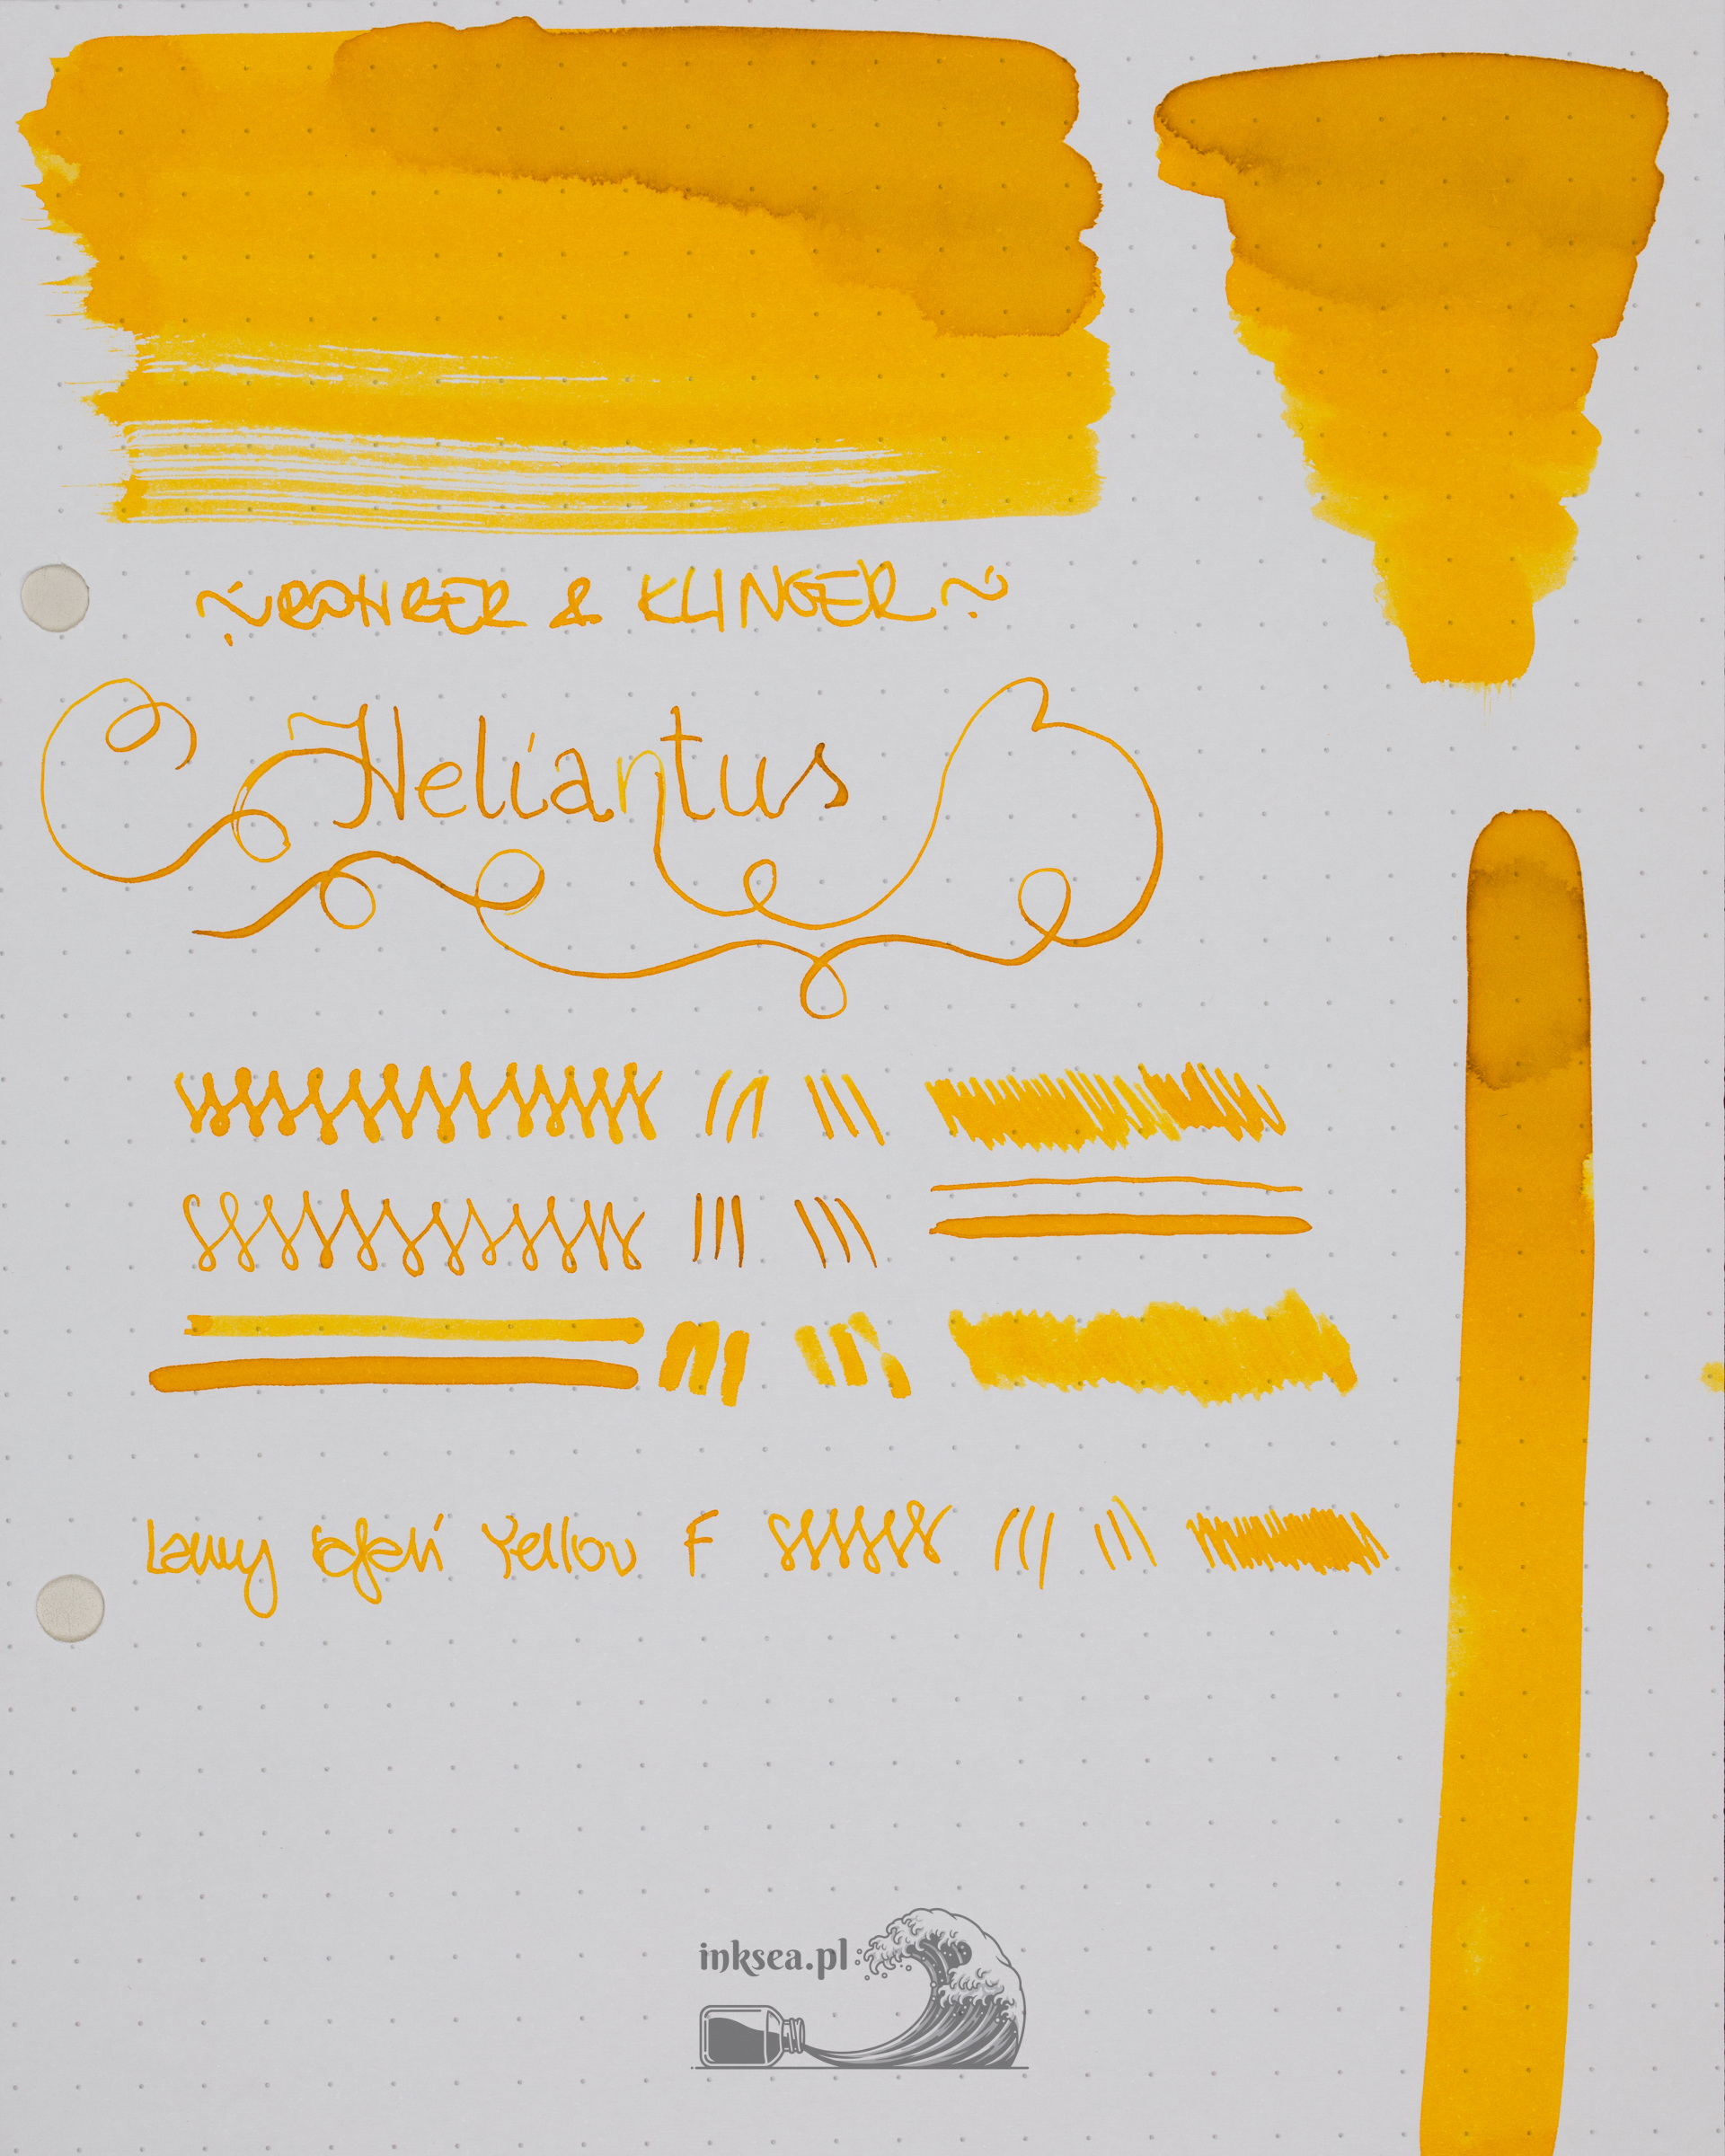 ~ROHRER & KLINGER~
Heliantus
Lamy Safari Yellow F
inksea.pl